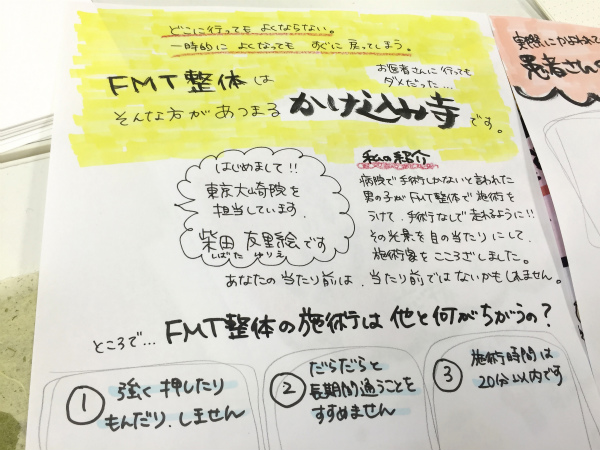 どこに行ってもよくならない。
一時的によくなってもすぐに戻ってしまう。
FMT整体は
お医者さんに行っても
ダメだった…
そんな方があつまるかけ込み寺です。
はじめまして!!
東京大崎院を
担当しています。
柴田友里絵です
しばたゆりえ
私の紹介
病院で手術しかないと言われた
男の子がFMT整体で施術を
うけて、手術なしで走れるように!!
その光景を目の当たりにして、
施術家をこころざしました。
あなたの当たり前は、当たり前ではないかもしれません。
ところで…FMT整体の施術は他と何がちがうの?
① 強く押したり
もんだり、しません
② だらだらと
長期間通うことを
すすめません
③ 施術時間は
20分以内です
実際にかよわれて
患者さん